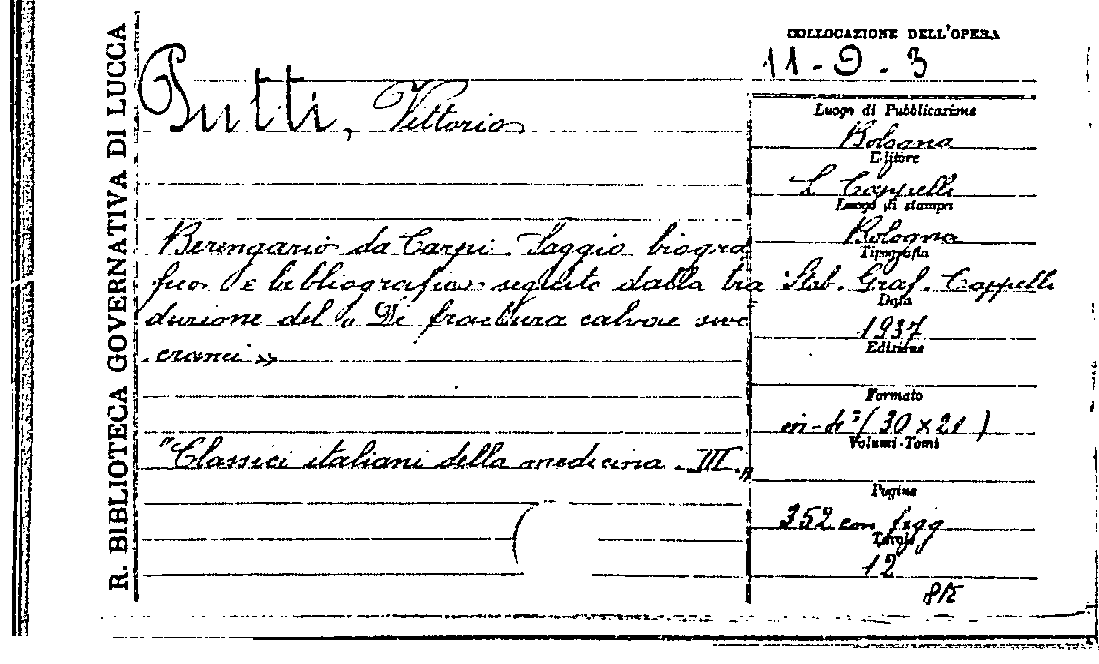 R. BIBLIOTECA GOVERNATIVA DI LUCCA
Putti, Vittorio
Berengario da Carpi. Saggio biogra
fico e bibliografico seguito dalla tra
duzione del « De fractura calvae sive
cranei »
"Classici italiani della medicina. III.,
COLLOCAZIONE DELL'OPERA
11 - D . 3
Luogo di Pubblicazione
Bologna
Editore
L Cappelli
Luogo di stampa
Bologna
Tipografia
Stab. Graf. Cappelli
Data
1937
Edizione
Formato
in-4° (30 x 21)
Volumi-Tomi
Pagine
352 con figg
Tavole
12